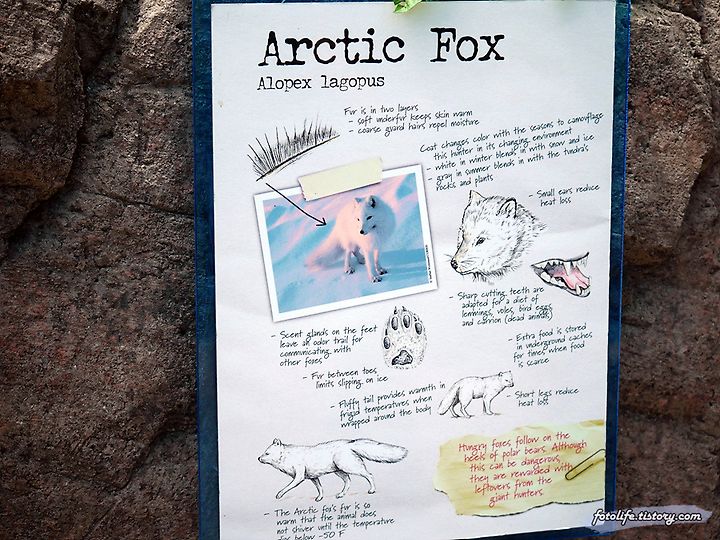 Arctic Fox
Alopex lagopus
Fur is in two layers
- soft underfur keeps skin warm
- coarse guard hairs repel moisture
Coat changes color with the seasons to camouflage
this hunter in its changing environment
- white in winter blends in with snow and ice
- gray in summer blends in with the tundra's
rocks and plants
- Small ears reduce
heat loss
- Sharp cutting teeth are
adapted for a diet of
lemmings, voles, bird eggs,
and carrion (dead animals)
- Scent glands on the feet
leave an odor trail for
communicating with
other foxes
- Extra food is stored
in underground caches
for times when food
is scarce
- Fur between toes
limits slipping on ice
- Fluffy tail provides warmth in
frigid temperatures when
wrapped around the body
- Short legs reduce
heat loss
Hungry foxes follow on the
heels of polar bears. Although
this can be dangerous,
they are rewarded with
leftovers from the
giant hunters.
- The Arctic fox's fur is so
warm that the animal does
not shiver until the temperature
below -50 F
fotolife.tistory.com